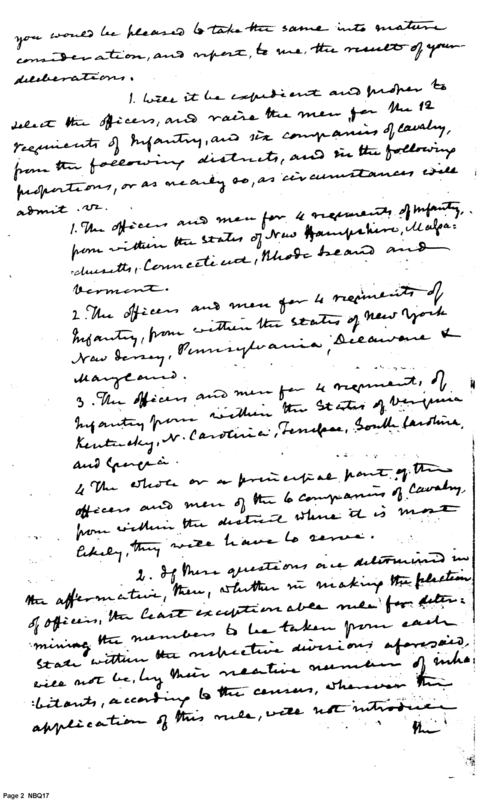 you would be pleased to take the same into mature
consideration, and report, to me, the result of your
deliberations.
1. Will it be expedient and proper to
select the officers, and raise the men for the 12
regiments of Infantry, and six companies of Cavalry,
from the following districts, and in the following
proportions, or as nearly so, as circumstances will
admit. viz.
1. The officers and men for 4 regiments of Infantry,
from within the States of New Hampshire, Massa-
chusetts, Connecticut, Rhode Island and
Vermont.
2. The officers and men for 4 regiments of
Infantry, from within the States of New York
New Jersey, Pennsylvania, Delaware &
Maryland.
3. The officers and men for 4 regiments, of
Infantry from within the States of Virginia
Kentucky, N. Carolina, Tennessee, South Carolina,
and Georgia.
4 The whole or a principal part of the
officers and men of the 6 companies of Cavalry,
from within the district where it is most
likely, they will have to serve.
2. If these questions are determined in
the affirmative, then, whether in making the selection
of officers, the least exceptionable rule for deter=
mining the numbers to be taken from each
State within the respective divisions aforesaid,
will not be, by their relative number of inha=
bitants, according to the census, wherever the
application of this rule, will not introduce
the
Page 2 NBQ17